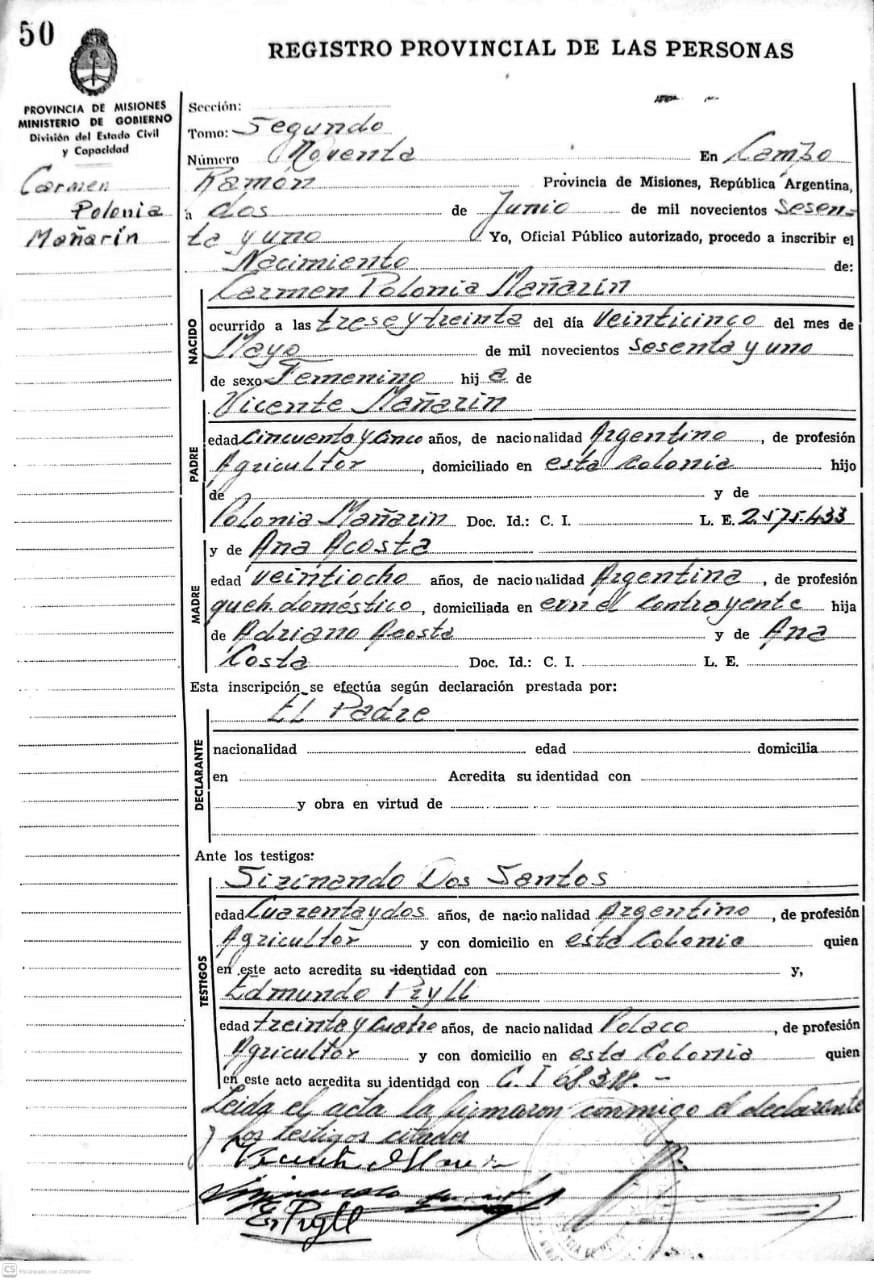 50
REGISTRO PROVINCIAL DE LAS PERSONAS
PROVINCIA DE MISIONES
MINISTERIO DE GOBIERNO
División del Estado Civil
y Capacidad
Carmen
Polonia
Mañarin
Sección:
Tomo: Segundo
Número Noventa En Campo
Ramón Provincia de Misiones, República Argentina,
a dos de Junio de mil novecientos Sesen-
ta y uno Yo, Oficial Público autorizado, procedo a inscribir el
Nacimiento de:
NACIDO
Carmen Polonia Mañarin
ocurrido a las trese y treinta del día veinticinco del mes de
Mayo de mil novecientos sesenta y uno
de sexo Femenino hij a de
Vicente Mañarin
PADRE
edad Cincuenta y cinco años, de nacionalidad Argentino, de profesión
Agricultor, domiciliado en esta Colonia hijo
de y de
Polonia Mañarin Doc. Id.: C. I. L. E. 2.575.433
y de Ana Acosta
MADRE
edad veintiocho años, de nacionalidad Argentina, de profesión
queh. doméstico, domiciliada en con el Contrayente hija
de Adriano Acosta y de Ana
Costa Doc. Id.: C. I. L. E.
Esta inscripción se efectúa según declaración prestada por:
El Padre
DECLARANTE
nacionalidad edad domicilia
en Acredita su identidad con
y obra en virtud de
Ante los testigos:
TESTIGOS
Sizinando Dos Santos
edad Cuarenta y dos años, de nacionalidad Argentino, de profesión
Agricultor y con domicilio en esta Colonia quien
en este acto acredita su identidad con y,
Edmundo Pryll
edad treinta y cuatro años, de nacionalidad Polaco, de profesión
Agricultor y con domicilio en esta Colonia quien
en este acto acredita su identidad con C. I
Leida el acta la firmaron conmigo el declarante
y los testigos citados
E. Pryll
CS Escaneado con CamScanner